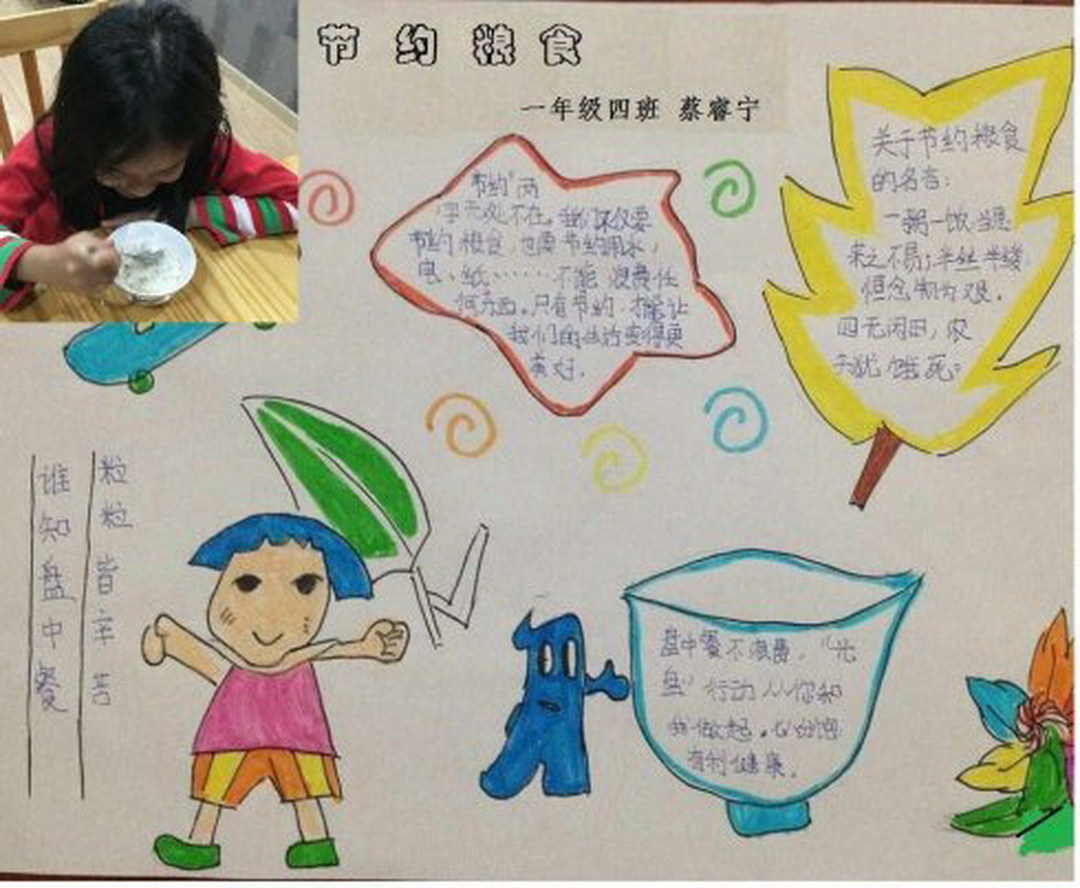 节约粮食
一年级四班 蔡睿宁
"节约"两
字无处不在。我们不仅要
节约粮食,也要节约用水,
电、纸……不能浪费任
何东西。只有节约,才能让
我们的生活变得更
美好。
关于节约粮食
的名言:
一粥一饭,当思
来之不易;半丝半缕,
恒念物力艰。
四无闲田,农
夫犹饿死。
谁知盘中餐
粒粒皆辛苦
盘中餐不浪费,"光
盘"行动从你和
我做起。
有利健康。